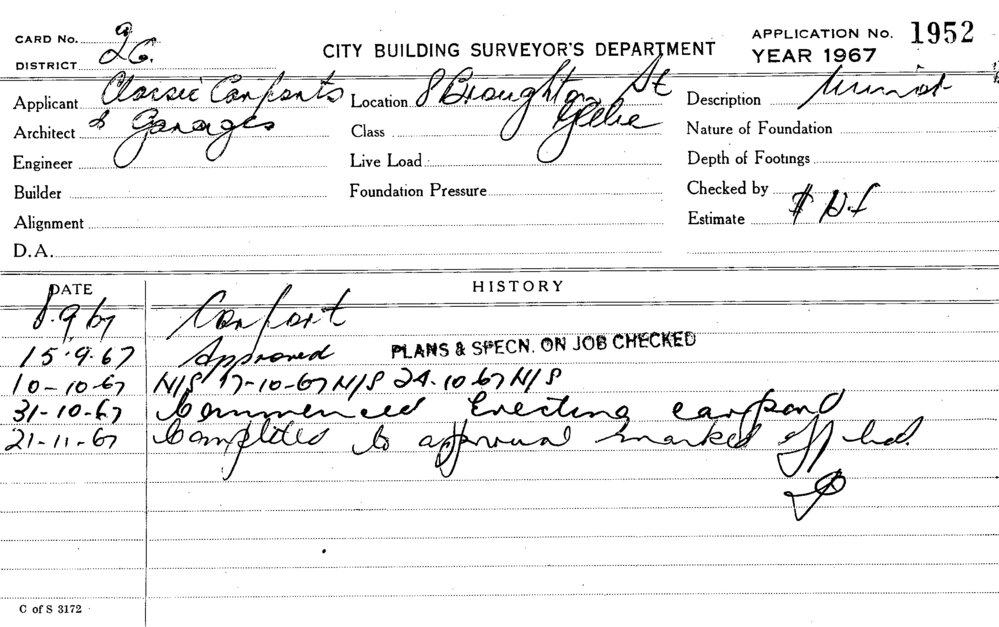 CARD No. 9
DISTRICT 2G.
CITY BUILDING SURVEYOR'S DEPARTMENT
APPLICATION No. 1952
YEAR 1967
Applicant Classic Carports Location 8 Broughton St Description
Architect & Garages Class Glebe Nature of Foundation
Engineer Live Load Depth of Footings
Builder Foundation Pressure Checked by
Alignment Estimate $
D.A.
DATE HISTORY
8.9.67 Carport
15.9.67 Approved PLANS & SPECN. ON JOB CHECKED
10-10-67 N/S 17-10-67 N/S 24.10.67 N/S
31-10-67 Commenced Erecting carport
21-11-67 Completed to approval marked off
C of S 3172